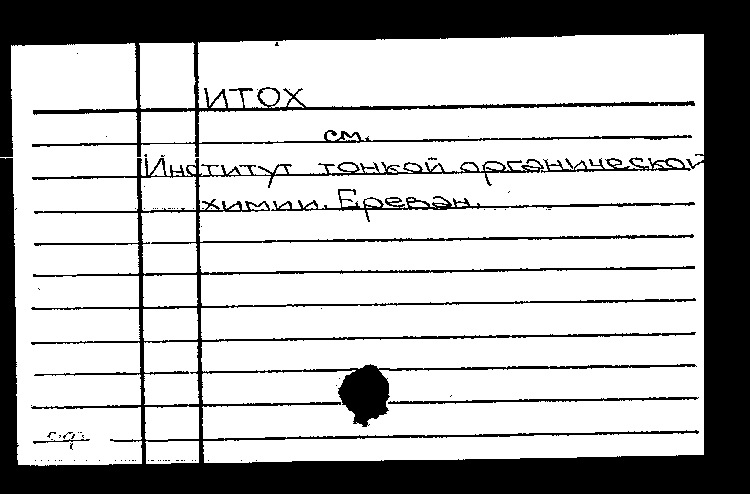 ИТОХ
см.
Институт тонкой органической
химии. Ереван.